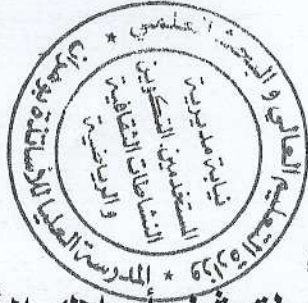 وزارة التعليم العالي و البحث العلمي
المدرسة العليا للأساتذة بوهران
نيابة مديرية
المستخدمين التكوين
النشاطات الثقافية
و الرياضية